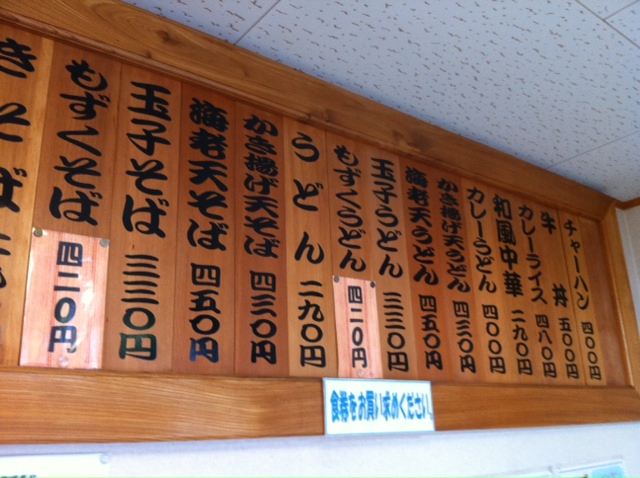 チャーハン 四〇〇円
牛丼 五〇〇円
カレーライス 四八〇円
和風中華 二九〇円
カレーうどん 四〇〇円
かき揚げ天うどん 四三〇円
海老天うどん 四五〇円
玉子うどん 三三〇円
もずくうどん 四二〇円
うどん 二九〇円
かき揚げ天そば 四三〇円
海老天そば 四五〇円
玉子そば 三三〇円
もずくそば 四二〇円
きそば
食券をお買い求めください。